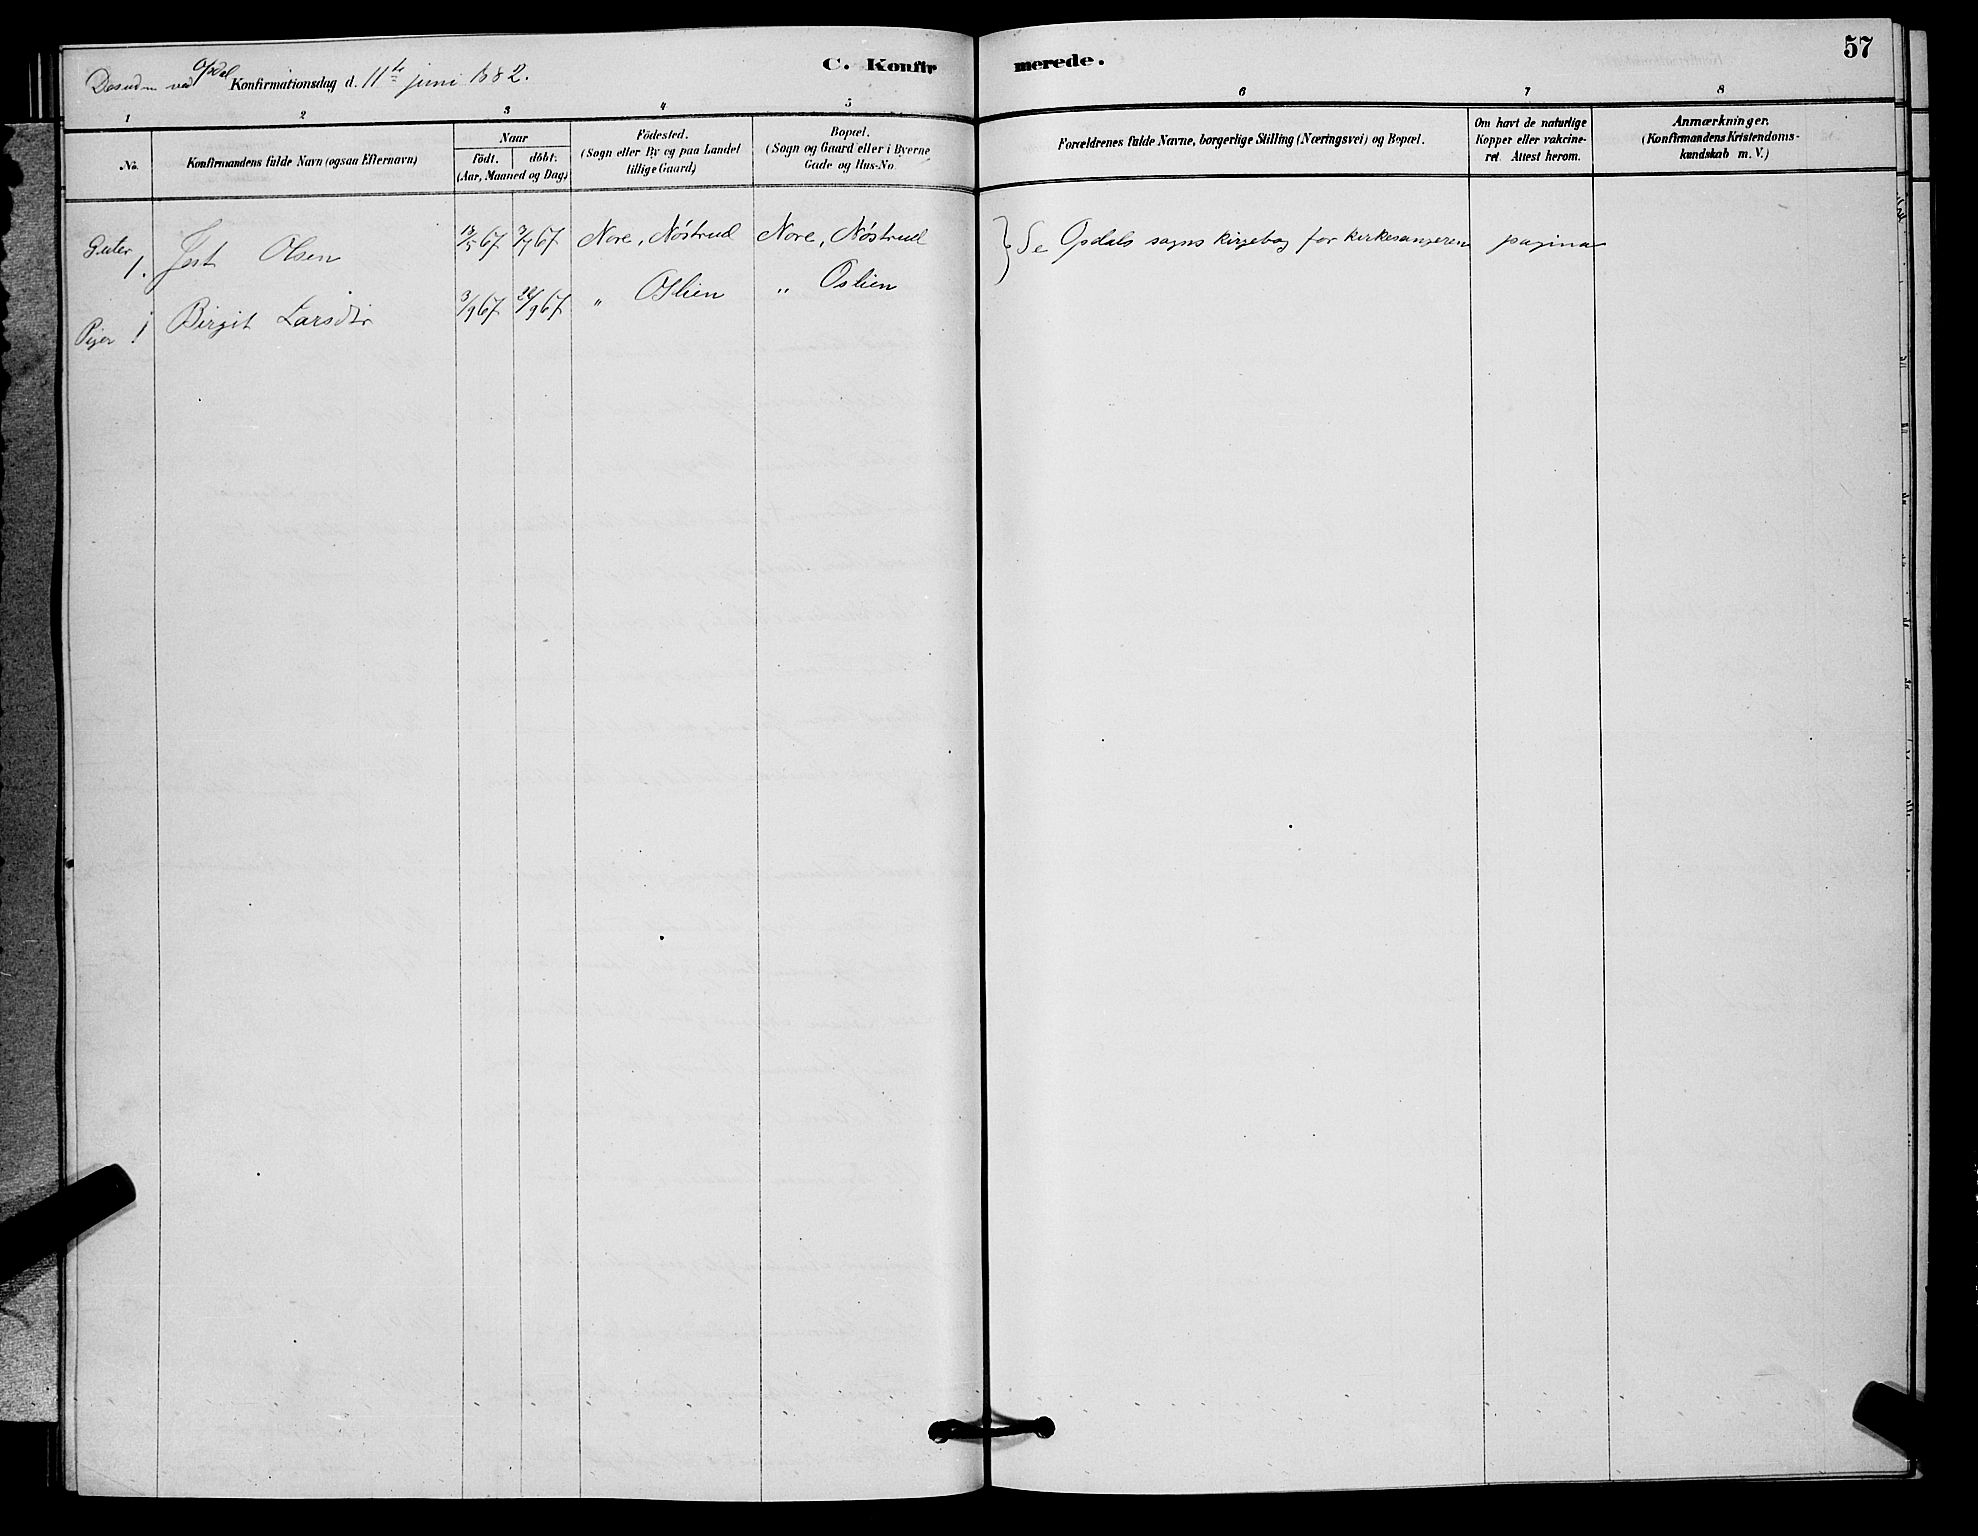 C. Konfirmerede.
57
Desuden ved Opdal Konfirmationsdag d. 11te juni 1882.
1 2 3 4 5 6 7 8
No. Konfirmandens fulde Navn (ogsaa Efternavn)
Naar
födt. döbt.
(Aar, Maaned og Dag)
Födested.
(Sogn eller By og paa Landet
tillige Gaard)
Bopæl.
(Sogn og Gaard eller i Byerne
Gade og Hus-No.
Forældrenes fulde Navne, borgerlige Stilling (Næringsvei) og Bopæl.
Om havt de naturlige
Kopper eller vakcine-
ret. Attest herom.
Anmærkninger.
(Konfirmandens Kristendoms-
kundskab m. V.)
Gutter 1. Jost Olsen 13/5 67 7/7 67 Nore, Nöstrud Nore, Nöstrud } Se Opdals sogns kirgebog for kirkesangeren pagina
Piger 1 Birgit Larsdtr 3/9 67 22/9 67 " Oslien " Oslien